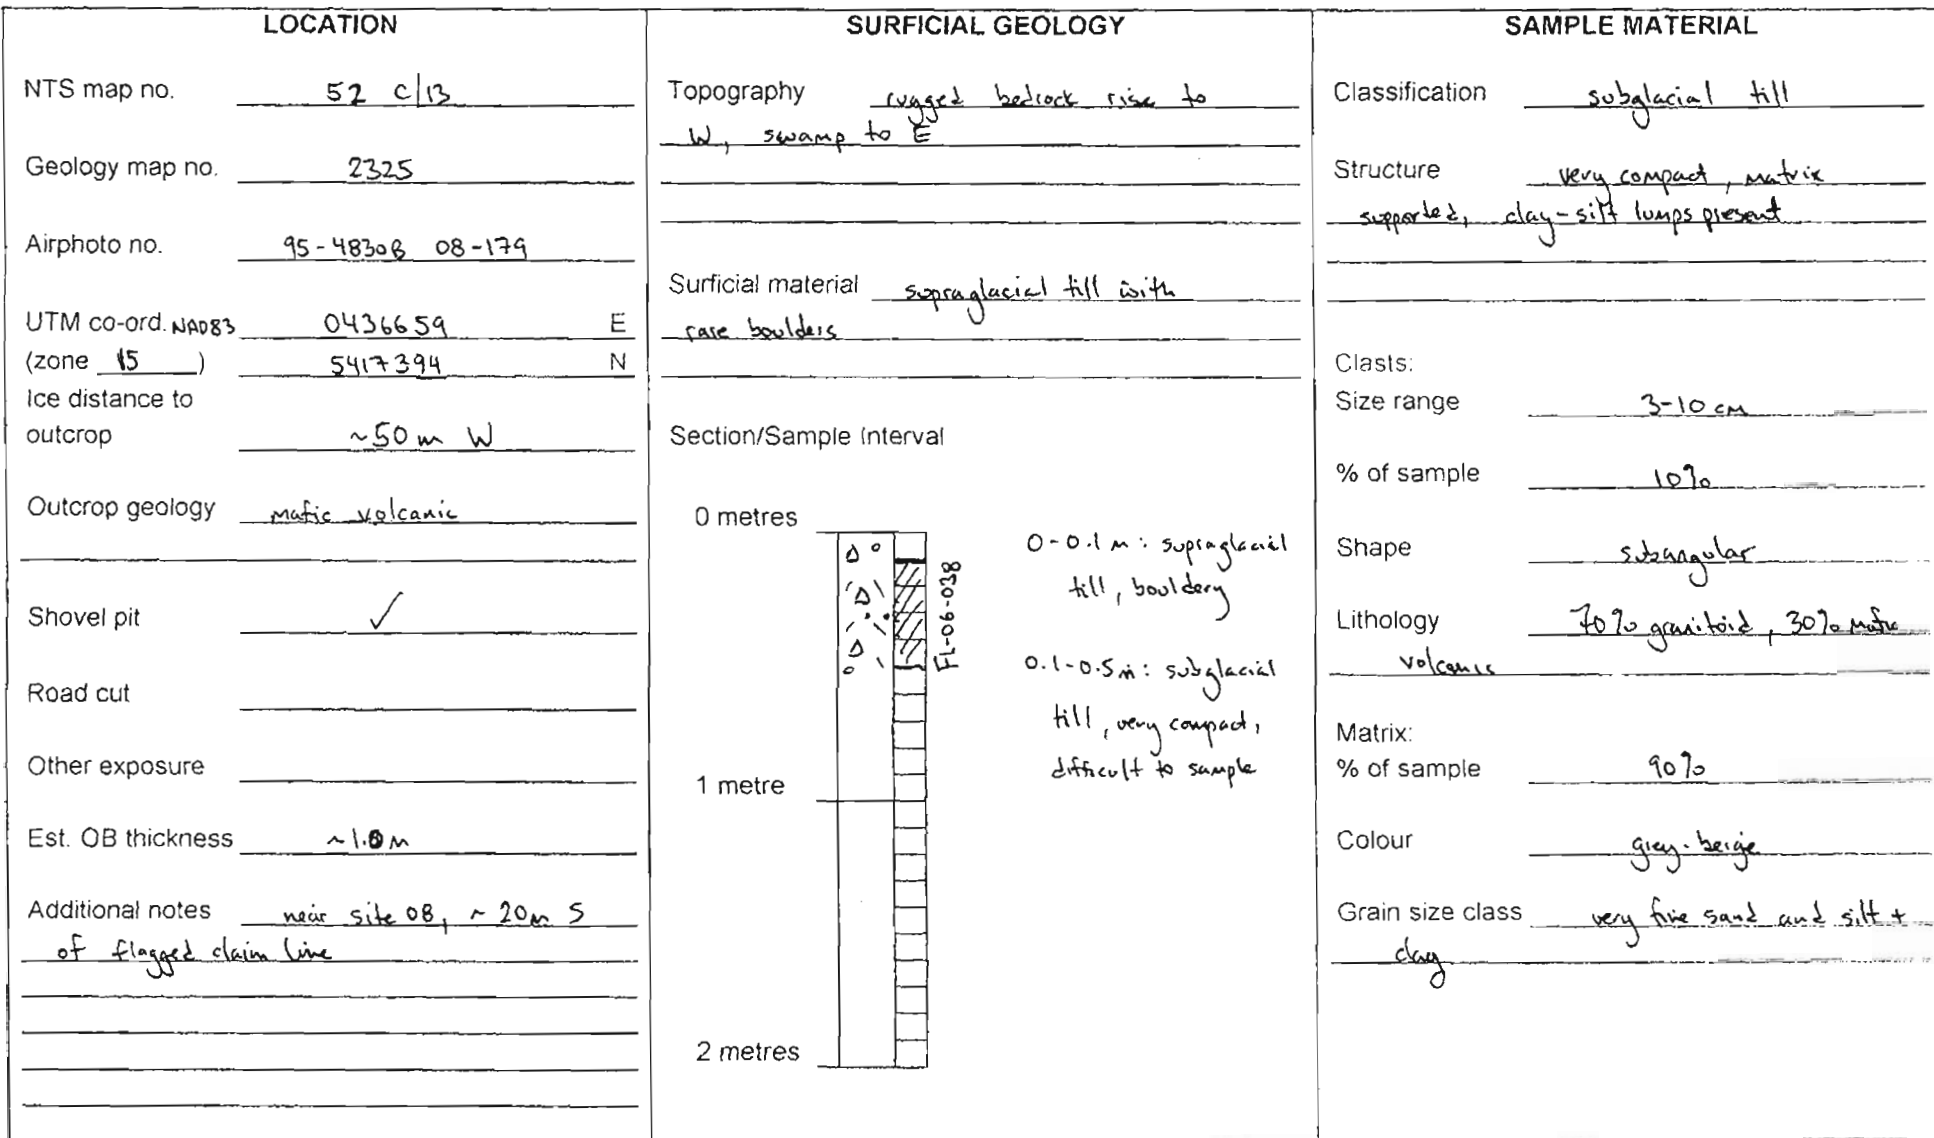 LOCATION
NTS map no. 52 C/13
Geology map no. 2325
Airphoto no. 95-4830B 08-179
UTM co-ord. NAD83 0436659 E
(zone 15 ) 5417394 N
Ice distance to
outcrop ~50 m W
Outcrop geology mafic volcanic
Shovel pit ✓
Road cut
Other exposure
Est. OB thickness ~1.0 m
Additional notes near site 08, ~ 20m S
of flagged claim line
SURFICIAL GEOLOGY
Topography rugged bedrock rise to
W, swamp to E
Surficial material supraglacial till with
rare boulders
Section/Sample Interval
0 metres
1 metre
2 metres
FL-06-038
0-0.1 m: supraglacial
till, bouldery
0.1-0.5 m: subglacial
till, very compact,
difficult to sample
SAMPLE MATERIAL
Classification subglacial till
Structure very compact, matrix
supported, clay-silt lumps present
Clasts:
Size range 3-10 cm
% of sample 10%
Shape subangular
Lithology 70% granitoid, 30% mafic
volcanic
Matrix:
% of sample 90%
Colour grey-beige
Grain size class very fine sand and silt +
clay